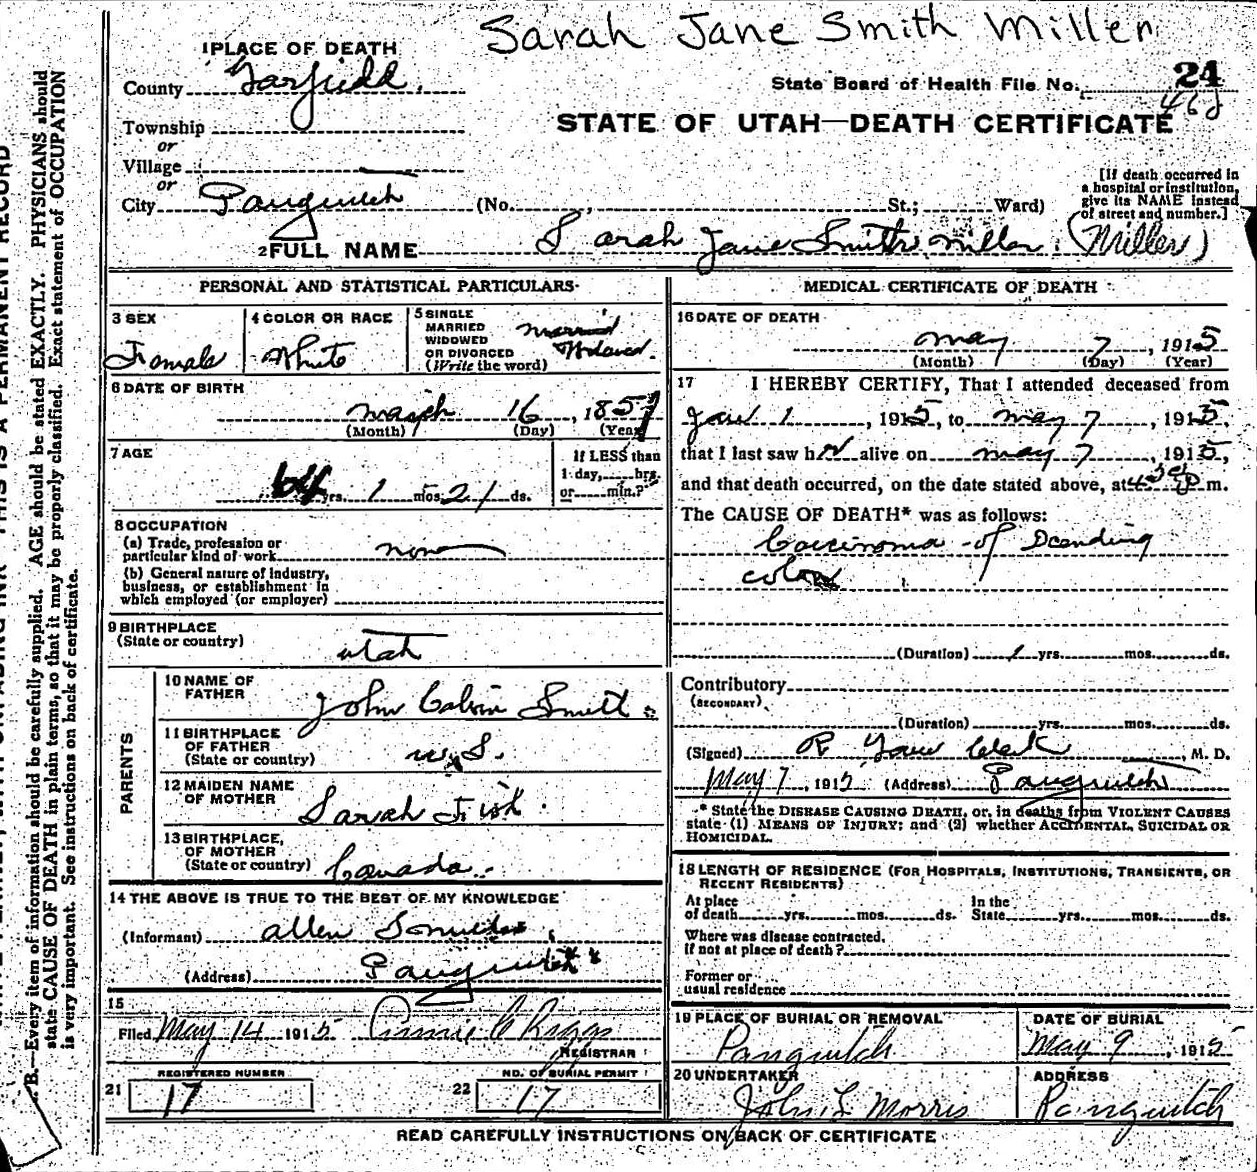 Sarah Jane Smith Miller
1 PLACE OF DEATH
County Garfield.
State Board of Health File No. 24
468
Township
or
STATE OF UTAH—DEATH CERTIFICATE
Village
or
City Panguitch (No. , St.; Ward)
[If death occurred in
a hospital or institution,
give its NAME instead
of street and number.]
2 FULL NAME Sarah Jane Smith Miller. (Miller)
PERSONAL AND STATISTICAL PARTICULARS
3 SEX
Female
4 COLOR OR RACE
White
5 SINGLE
MARRIED
WIDOWED
OR DIVORCED
(Write the word)
married
Widowed.
6 DATE OF BIRTH
March 16, 1851
(Month) (Day) (Year)
7 AGE
64 yrs. 1 mos. 21 ds.
If LESS than
1 day, hrs.
or min.?
8 OCCUPATION
(a) Trade, profession or
particular kind of work none
(b) General nature of industry,
business, or establishment in
which employed (or employer)
9 BIRTHPLACE
(State or country) Utah
PARENTS
10 NAME OF
FATHER John Calvin Smith
11 BIRTHPLACE
OF FATHER
(State or country)
12 MAIDEN NAME
OF MOTHER Sarah Fish.
13 BIRTHPLACE,
OF MOTHER
(State or country) Canada.
14 THE ABOVE IS TRUE TO THE BEST OF MY KNOWLEDGE
(Informant) Allen
(Address) Panguitch
15
Filed May 14 1915 Annie C Riggs
REGISTRAR
REGISTERED NUMBER
21 17
NO. OF BURIAL PERMIT
22 17
MEDICAL CERTIFICATE OF DEATH
16 DATE OF DEATH
May 7, 1915
(Month) (Day) (Year)
17 I HEREBY CERTIFY, That I attended deceased from
Jan 1, 1915, to May 7, 1915,
that I last saw h alive on May 7, 1915,
and that death occurred, on the date stated above, at m.
The CAUSE OF DEATH* was as follows:
Carcinoma of Dcending
colon
(Duration) 1 yrs. mos. ds.
Contributory
(SECONDARY)
(Duration) yrs. mos. ds.
(Signed) R Clark, M. D.
May 7, 1915 (Address) Panguitch
* State the DISEASE CAUSING DEATH, or, in deaths from VIOLENT CAUSES
state (1) MEANS OF INJURY; and (2) whether ACCIDENTAL, SUICIDAL OR
HOMICIDAL.
18 LENGTH OF RESIDENCE (FOR HOSPITALS, INSTITUTIONS, TRANSIENTS, OR
RECENT RESIDENTS)
At place
of death yrs. mos. ds.
In the
State yrs. mos. ds.
Where was disease contracted,
if not at place of death?
Former or
usual residence
19 PLACE OF BURIAL OR REMOVAL
Panguitch
DATE OF BURIAL
May 9, 1915
20 UNDERTAKER
John L Morris
ADDRESS
Panguitch
READ CAREFULLY INSTRUCTIONS ON BACK OF CERTIFICATE
THIS IS A PERMANENT RECORD
B.—Every item of information should be carefully supplied. AGE should be stated EXACTLY. PHYSICIANS should
state CAUSE OF DEATH in plain terms, so that it may be properly classified. Exact statement of OCCUPATION
is very important. See instructions on back of certificate.